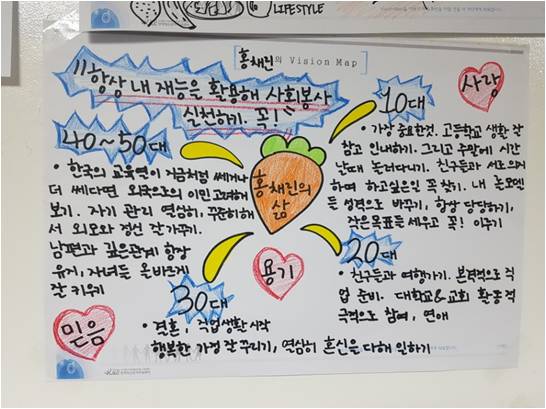 LIFESTYLE
홍채린의 Vision Map
"항상 내 재능을 활용해 사회봉사
실천하기. 꼭!"
사랑
10대
• 가장 중요한것. 고등학교 생활 잘
참고 인내하기. 그리고 주말에 시간
날때 놀러다니기. 친구들과 서로 의지
하며 하고싶은일 꼭 찾기. 내
성격으로 바꾸기, 항상 당당하기,
작은목표들 세우고 꼭! 이루기
40~50대
• 한국의 교육열이 지금처럼 쎄거나
더 쎄다면 외국으로의 이민 고려해
보기. 자기 관리 열심히, 꾸준히해
서 외모와 정신 잘 가꾸기.
남편과 깊은관계 항상
유지, 자녀들 올바르게
잘 키우기
홍채린의
삶
20대
• 친구들과 여행가기. 본격적으로 직
업 준비. 대학교&교회 활동 적
극적으로 참여, 연애
용기
30대
• 결혼, 직업생활 시작
행복한 가정 잘 꾸리기, 열심히 혼신을 다해 일하기
믿음